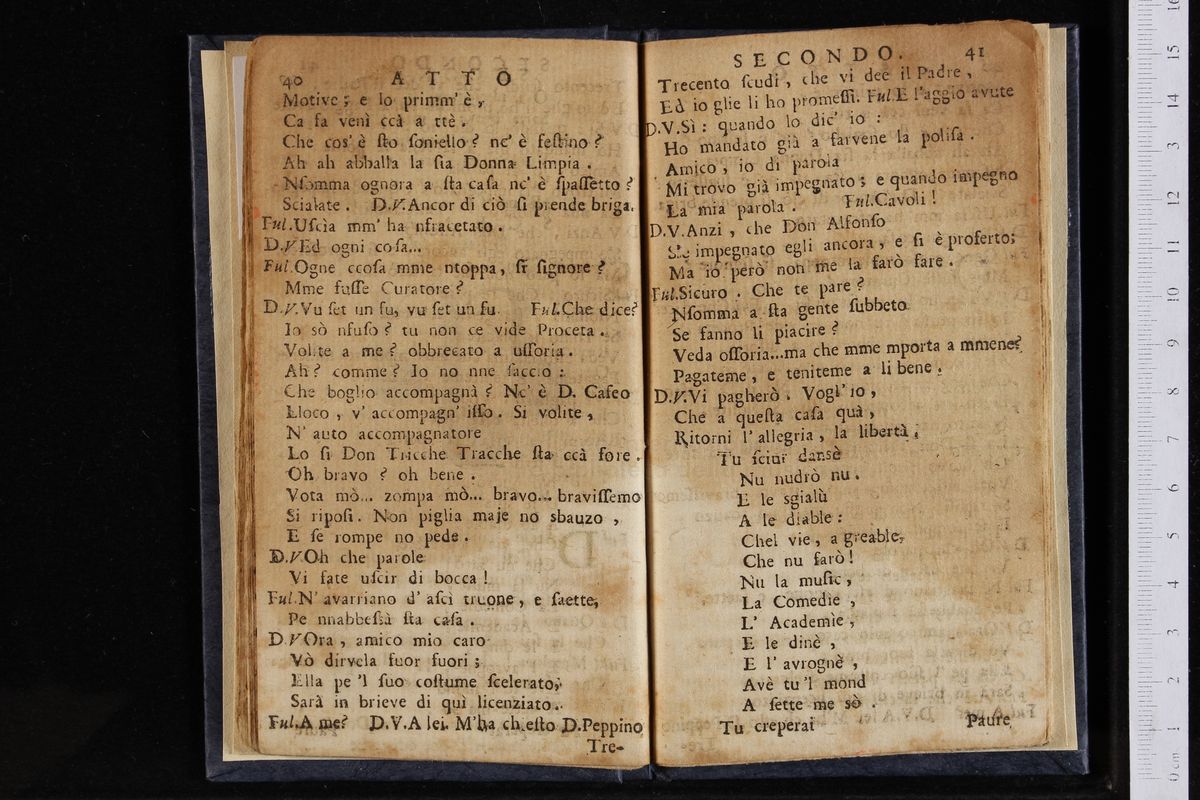 40 ATTO
Motive; e lo primm' è,
Ca fa venì ccà a ttè.
Che cos' è ſto ſoniello? nc' è feſtino?
Ah ah abballa la ſia Donna Limpia.
Nſomma ognora a ſta caſa nc' è ſpaſſetto?
Scialate. D.V.Ancor di ciò ſi prende briga.
Ful.Uſcìa mm' ha nfracetato.
D.V.Ed ogni coſa...
Ful.Ogne ccoſa mme ntoppa, sì ſignore?
Mme fuſſe Curatore?
D.V.Vu ſet un fu, vu ſet un fu. Ful.Che dice?
Io sò nfuſo? tu non ce vide Proceta.
Volite a me? obbrecato a uſſoria.
Ah? comme? Io no nne ſaccio:
Che boglio accompagnà? Nc' è D. Caſeo
Lloco, v' accompagn' iſſo. Si volite,
N' auto accompagnatore
Lo ſi Don Tricche Tracche ſta ccà fore.
Oh bravo? oh bene.
Vota mò... zompa mò... bravo... braviſſemo
Si ripoſi. Non piglia maje no sbauzo,
E ſe rompe no pede.
D.V.Oh che parole
Vi fate uſcir di bocca!
Ful.N' avarriano d' aſcì truone, e ſaette,
Pe nnabbeſſà ſta caſa.
D.V.Ora, amico mio caro
Vò dirvela fuor fuori;
Ella pe 'l ſuo coſtume ſcelerato,
Sarà in brieve di quì licenziato.
Ful.A me? D.V.A lei. M'ha chieſto D.Peppino
Tre-
SECONDO. 41
Trecento ſcudi, che vi dee il Padre,
Ed io glie li ho promeſſi. Ful.E l'aggio avute
D.V.Sì: quando lo dic' io:
Ho mandato già a farvene la poliſa.
Amico, io di parola
Mi trovo già impegnato; e quando impegno
La mia parola. Ful.Cavoli!
D.V.Anzi, che Don Alfonſo
S'è impegnato egli ancora, e ſi è proferto;
Ma io però non me la farò fare.
Ful.Sicuro. Che te pare?
Nſomma a ſta gente ſubbeto
Se fanno li piacire?
Veda oſſoria...ma che mme mporta a mmene?
Pagateme, e teniteme a li bene.
D.V.Vi pagherò. Vogl' io,
Che a queſta caſa quà,
Ritorni l' allegria, la libertà.
Tu ſciur dansè
Nu nudrò nu.
E le sgialù
A le diable:
Chel vie, agreable,
Che nu farò!
Nu la muſic,
La Comedìe,
L' Academìe,
E le dinè,
E l' avrognè,
Avè tu 'l mond
A ſette me sò.
Tu creperai Paure